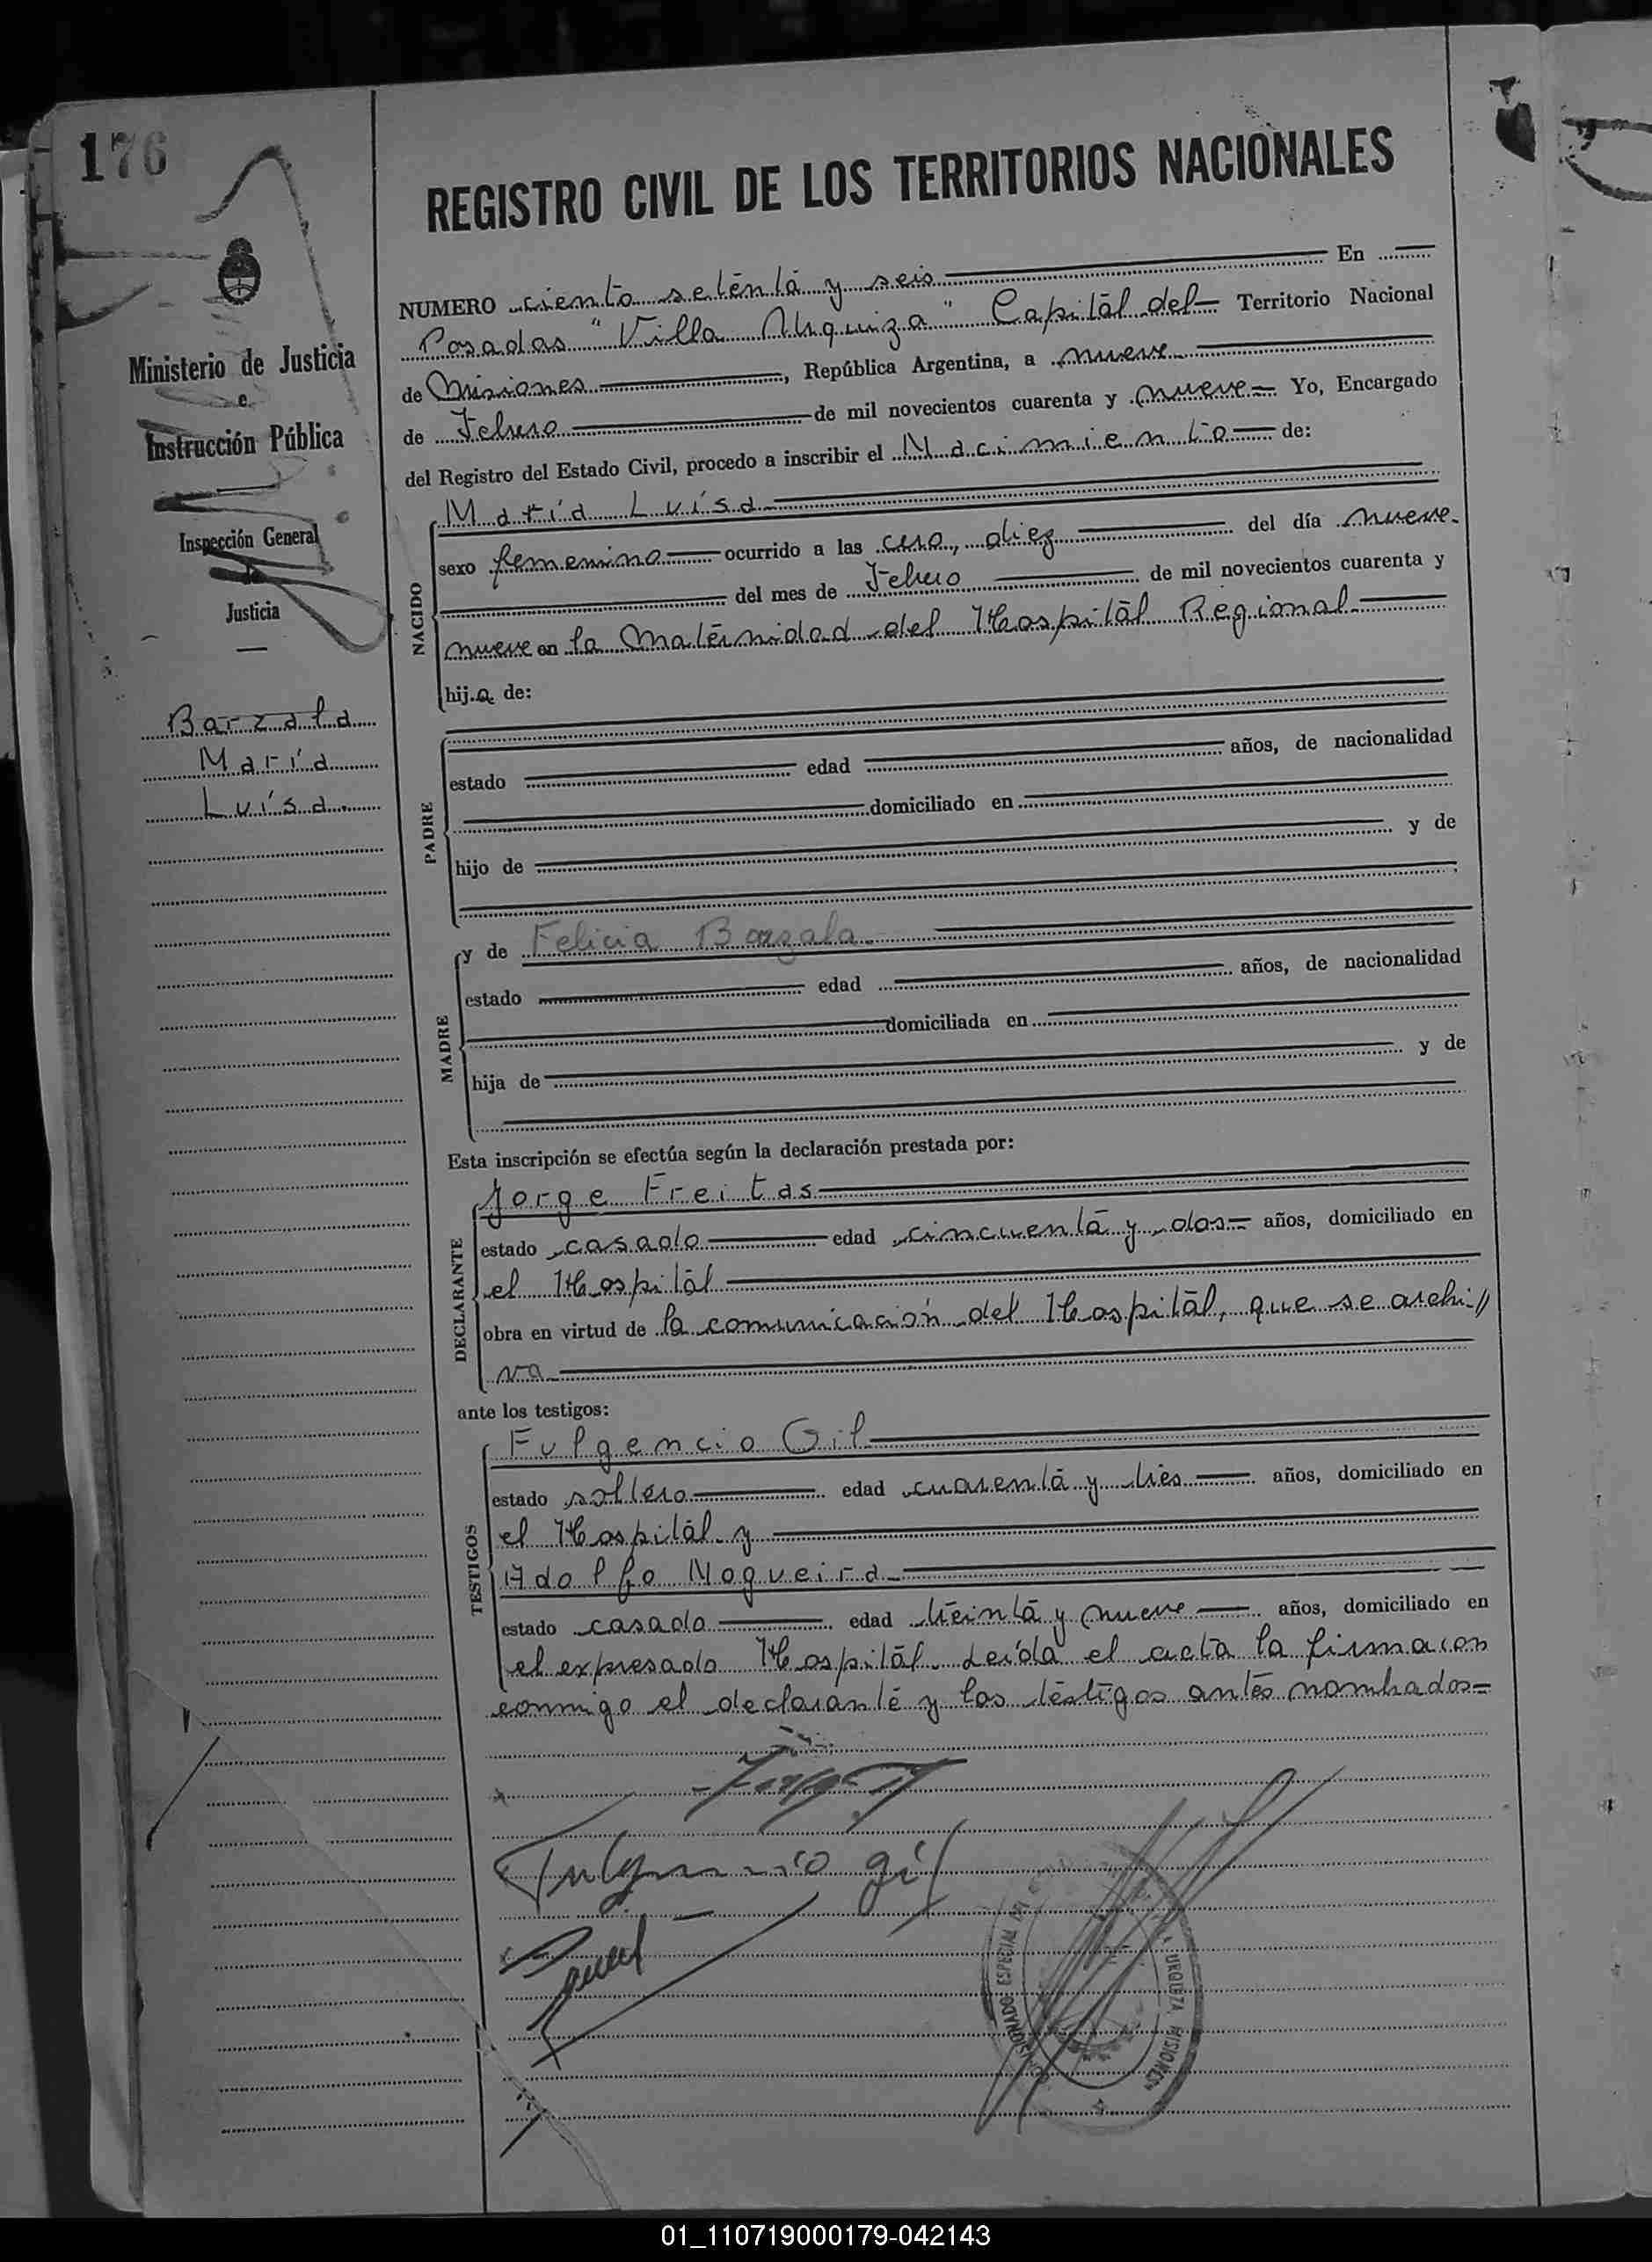 176
REGISTRO CIVIL DE LOS TERRITORIOS NACIONALES
Ministerio de Justicia
e
Instrucción Pública
Inspección General
de
Justicia
Barzala
María
Luísa.
NUMERO ciento setenta y seis En
Posadas "Villa Urquiza" Capital del Territorio Nacional
de Misiones, República Argentina, a nueve
de Febrero de mil novecientos cuarenta y nueve= Yo, Encargado
del Registro del Estado Civil, procedo a inscribir el Nacimiento de:
NACIDO
María Luísa
sexo femenino ocurrido a las cero, diez del día nueve
del mes de Febrero de mil novecientos cuarenta y
nueve en la Maternidad del Hospital Regional
hija de:
PADRE
estado edad años, de nacionalidad
domiciliado en
hijo de y de
MADRE
y de Felicia Barzala.
estado edad años, de nacionalidad
domiciliada en
hija de y de
Esta inscripción se efectúa según la declaración prestada por:
DECLARANTE
Jorge Freitas
estado casado edad cincuenta y dos= años, domiciliado en
el Hospital
obra en virtud de la comunicación del Hospital, que se archi//
va
ante los testigos:
TESTIGOS
Fulgencio Gil
estado soltero edad cuarenta y tres años, domiciliado en
el Hospital y
Adolfo Nogueira
estado casado edad treinta y nueve años, domiciliado en
el expresado Hospital. Leída el acta la firmaron
conmigo el declarante y los testigos antes nombrados=
Fulgencio gil
ESPECIAL DEL
URQUIZA MISIONES
01_110719000179-042143